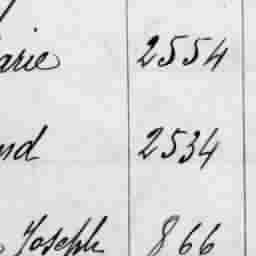 arie 2554
nd 2534
Joseph 866